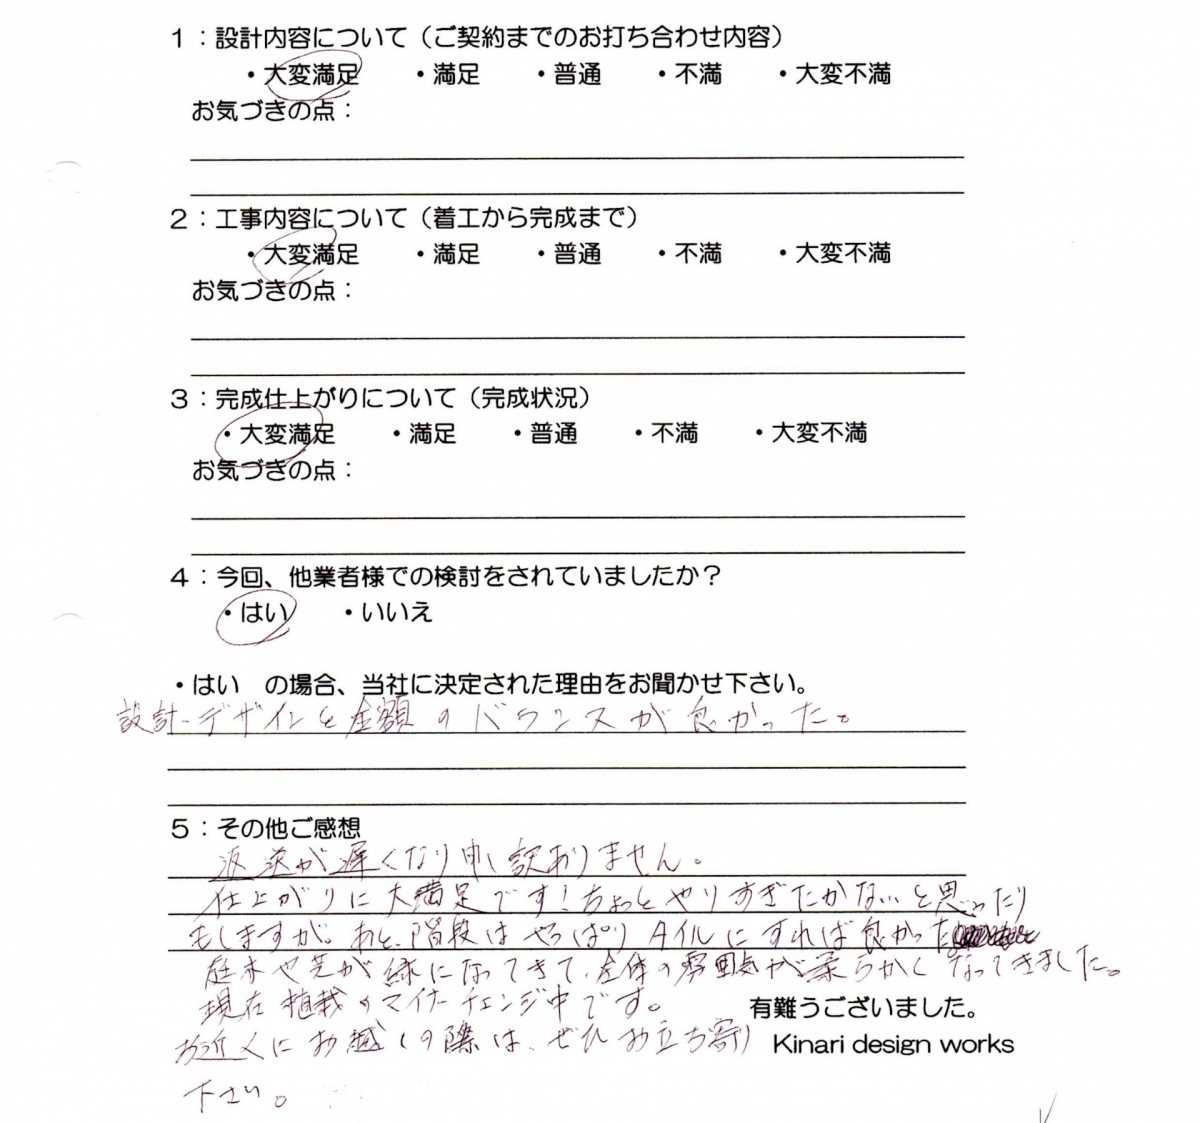 1：設計内容について（ご契約までのお打ち合わせ内容）
・大変満足 ・満足 ・普通 ・不満 ・大変不満
お気づきの点：
2：工事内容について（着工から完成まで）
・大変満足 ・満足 ・普通 ・不満 ・大変不満
お気づきの点：
3：完成仕上がりについて（完成状況）
・大変満足 ・満足 ・普通 ・不満 ・大変不満
お気づきの点：
4：今回、他業者様での検討をされていましたか？
・はい ・いいえ
・はい の場合、当社に決定された理由をお聞かせ下さい。
設計・デザインと金額のバランスが良かった。
5：その他ご感想
返送が遅くなり申し訳ありません。
仕上がりに大満足です！ちょっとやりすぎたかな…と思ったり
もしますが。あと、階段はやっぱりタイルにすれば良かった
庭木や芝が緑になってきて、全体の雰囲気が柔らかくなってきました。
現在植栽のマイナーチェンジ中です。
有難うございました。
お近くにお越しの際は、ぜひお立ち寄り
Kinari design works
下さい。